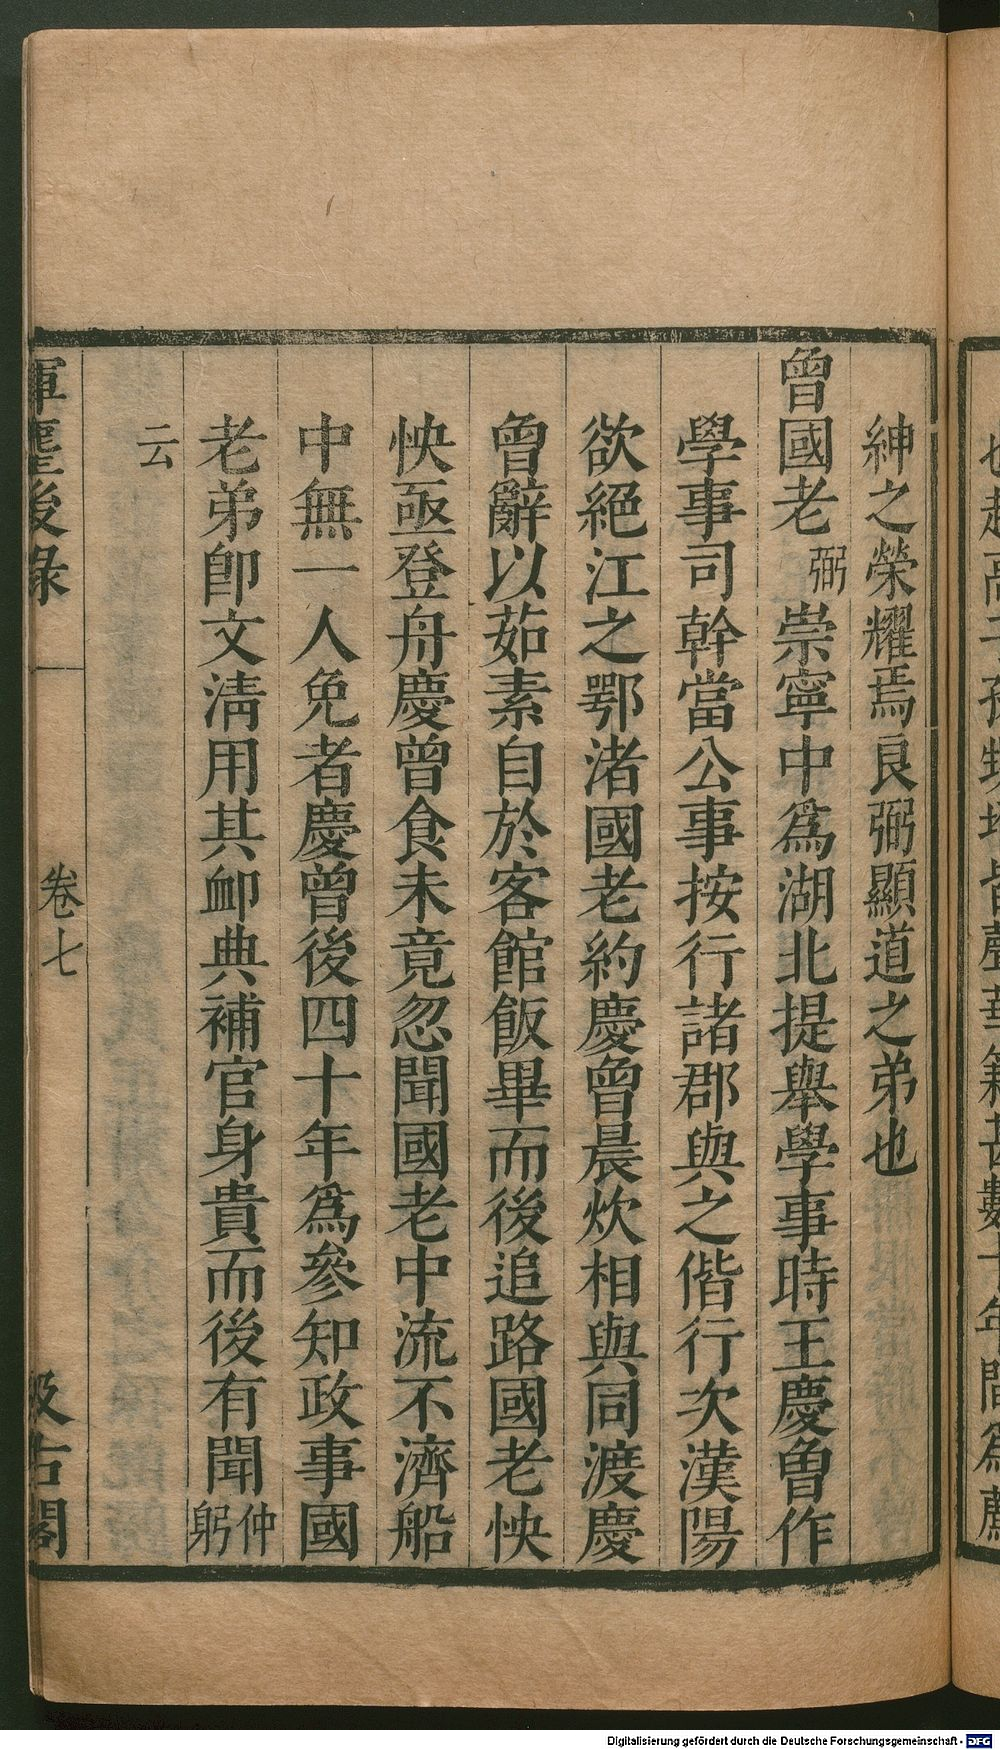 皆聲華籍甚數十年間爲
紳之榮耀焉良弼顯道之弟也
曾國老弼崇寧中爲湖北提舉學事時王慶曾作
學事司幹當公事按行諸郡與之偕行次漢陽
欲絕江之鄂渚國老約慶曾晨炊相與同渡慶
曾辭以茹素自於客館飯畢而後追路國老怏
怏亟登舟慶曾食未竟忽聞國老中流不濟船
中無一人免者慶曾後四十年爲參知政事國
老弟卽文淸用其卹典補官身貴而後有聞仲躬
云
揮麈後錄 卷七 汲古閣
Digitalisierung gefördert durch die Deutsche Forschungsgemeinschaft - DFG